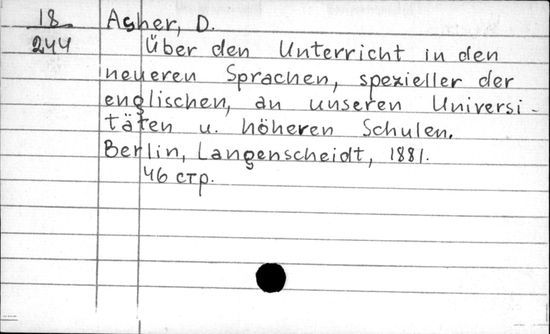 18 Asher, D.
244 Über den Unterricht in den
neueren Sprachen, spezieller der
englischen, an unseren Universi-
täten u. höheren Schulen.
Berlin, Langenscheidt, 1881.
46 стр.